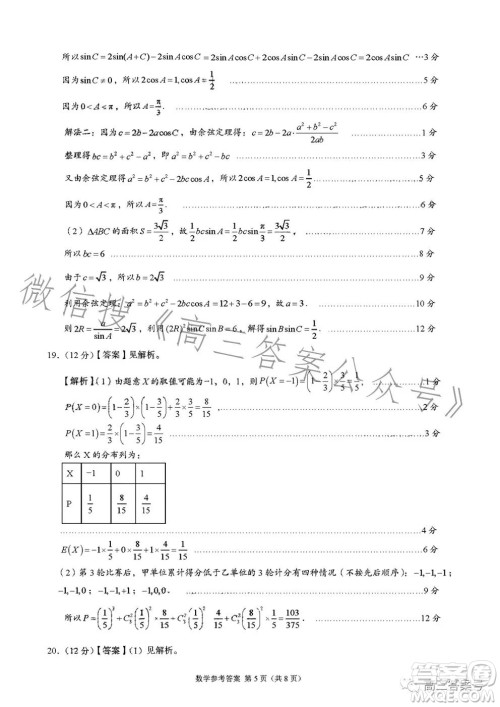 所以 sinC = 2sin(A+C) − 2sinAcosC = 2sinAcosC + 2cosAsinC − 2sinAcosC = 2cosAsinC …3 分
因为 sinC ≠ 0，所以 2cosA = 1, cosA = 1/2 ……5 分
因为 0 < A < π，所以 A = π/3 ……6 分
解法二：因为 c = 2b − 2acosC，由余弦定理得：c = 2b − 2a·(a² + b² − c²)/(2ab) ……1 分
整理得 bc = b² + c² − a²，即 a² = b² + c² − bc ……3 分
又由余弦定理得 a² = b² + c² − 2bccosA，所以 2cosA = 1, cosA = 1/2 ……5 分
因为 0 < A < π，所以 A = π/3 ……6 分
（2）ΔABC 的面积 S = 3√3/2，故 1/2 bcsinA = 1/2 bcsin π/3 = 3√3/2 ……7 分
所以 bc = 6 ……8 分
由于 c = √3，所以 b = 2√3 ……9 分
利用余弦定理 a² = b² + c² − 2bccosA = 12 + 3 − 6 = 9，故 a = 3. ……10 分
则 2R = a/sinA = 2√3，利用 (2R)² sinCsinB = 6，解得 sinBsinC = 1/2 ……12 分
19．（12 分）【答案】见解析。
【解析】（1）由题意 X 的取值可能为 −1，0，1，则 P(X = −1) = (1 − 2/3) × 3/5 = 1/5， ……1 分
P(X = 0) = (1 − 2/3) × (1 − 3/5) + 2/3 × 3/5 = 8/15 ……2 分
P(X = 1) = 2/3 × (1 − 3/5) = 4/15 ……3 分
那么 X 的分布列为：
X −1 0 1
P 1/5 8/15 4/15
……4 分
E(X) = −1 × 1/5 + 0 × 8/15 + 1 × 4/15 = 1/15 ……6 分
（2）第 3 轮比赛后，甲单位累计得分低于乙单位的 3 轮计分有四种情况（不按先后顺序）：−1, −1, −1；
−1, −1, 0；−1, −1, +1；−1, 0, 0. ……8 分
所以 P = (1/5)³ + C₃²(1/5)² × 8/15 + C₃²(1/5)² × 4/15 + C₃²(8/15)² × 1/5 = 103/375 ……12 分
20．（12 分）【答案】（1）见解析。
数学参考答案 第 5 页（共 8 页）
微信搜《高三答案公众号》
高三答案号